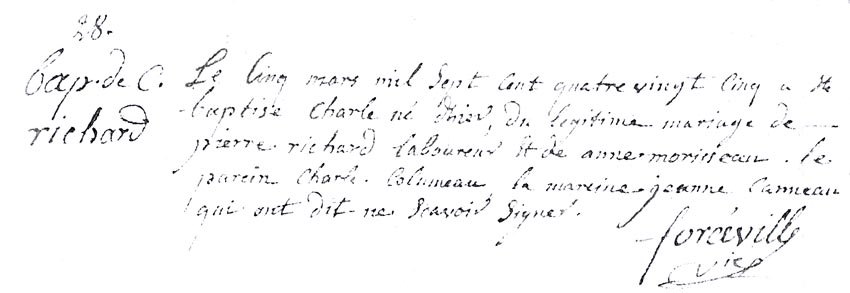 28.
bap. de C.
richard
Le Cinq mars mil Sept Cent quatre vingt Cinq a ete
baptise Charle né d'hier, du legitime mariage de
pierre richard laboureur et de anne morisseau. le
parein Charle Columeau, la mareine jeanne Canneau
qui ont dit ne Scavoir Signer.
forceville
vic